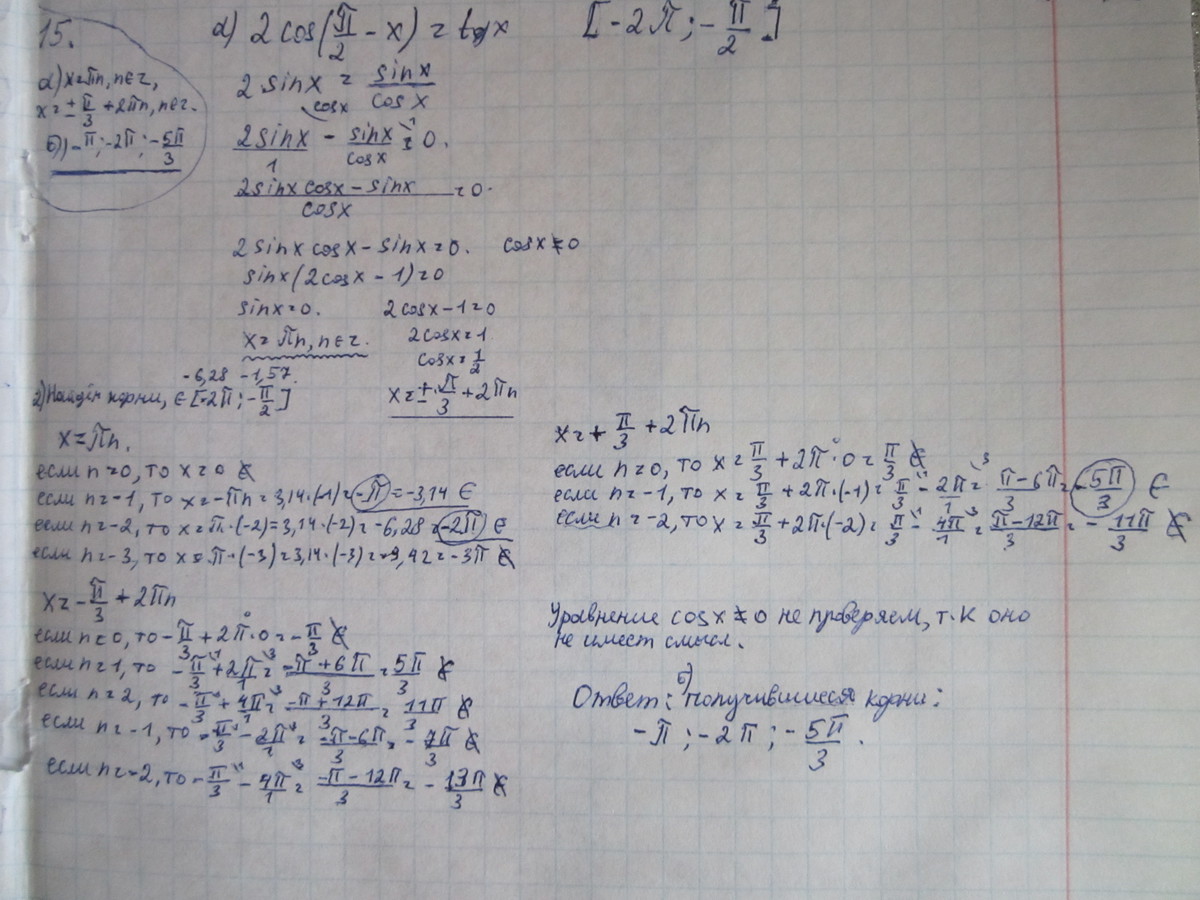 15.
a) 2 cos(π/2 - x) = tgx [-2π; -π/2]
a) x=πn, n∈z,
x=±π/3 +2πn, n∈z.
б) -π; -2π; -5π/3
2 sinx = sinx/cosx
2sinx/1 - sinx/cosx = 0.
(2sinx cosx - sinx)/cosx = 0.
2sinx cosx - sinx = 0. cosx ≠ 0
sinx(2cosx - 1) = 0
sinx=0. 2cosx-1=0
x=πn, n∈z. 2cosx=1
cosx=1/2
x=±π/3+2πn
-6,28 -1,57
2) Найдём корни, ∈ [-2π; -π/2]
x=πn.
если n=0, то x=0 ∉
если n=-1, то x=-πn=3,14·(-1)=-π=-3,14 ∈
если n=-2, то x=π·(-2)=3,14·(-2)=-6,28=-2π ∈
если n=-3, то x=π·(-3)=3,14·(-3)=-9,42=-3π ∉
x=-π/3+2πn
если n=0, то -π/3+2π·0=-π/3 ∉
если n=1, то -π/3+2π/1=(-π+6π)/3=5π/3 ∉
если n=2, то -π/3+4π/1=(-π+12π)/3=11π/3 ∉
если n=-1, то -π/3-2π/1=(-π-6π)/3=-7π/3 ∉
если n=-2, то -π/3-4π/1=(-π-12π)/3=-13π/3 ∉
x=+π/3+2πn
если n=0, то x=π/3+2π·0=π/3 ∉
если n=-1, то x=π/3+2π·(-1)=π/3-2π/1=(π-6π)/3=-5π/3 ∈
если n=-2, то x=π/3+2π·(-2)=π/3-4π/1=(π-12π)/3=-11π/3 ∉
Уравнение cosx≠0 не проверяем, т.к оно
не имеет смысл.
Ответ: б) получившиеся корни:
-π; -2π; -5π/3.